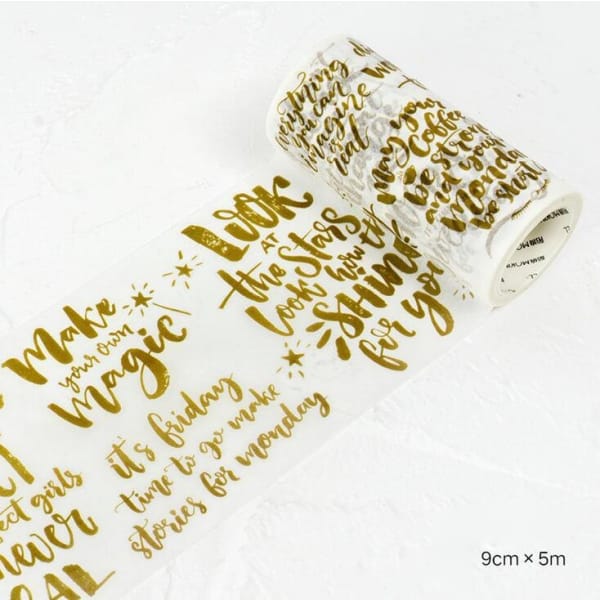 everything
you can
imagine
is
real
may your
Coffee
be strong
and your
Monday
be short
Look
AT
the Stars
look how they
SHINE
for you
Make
your own
magic
it's friday
time to go make
stories for monday
girls
never
9cm × 5m